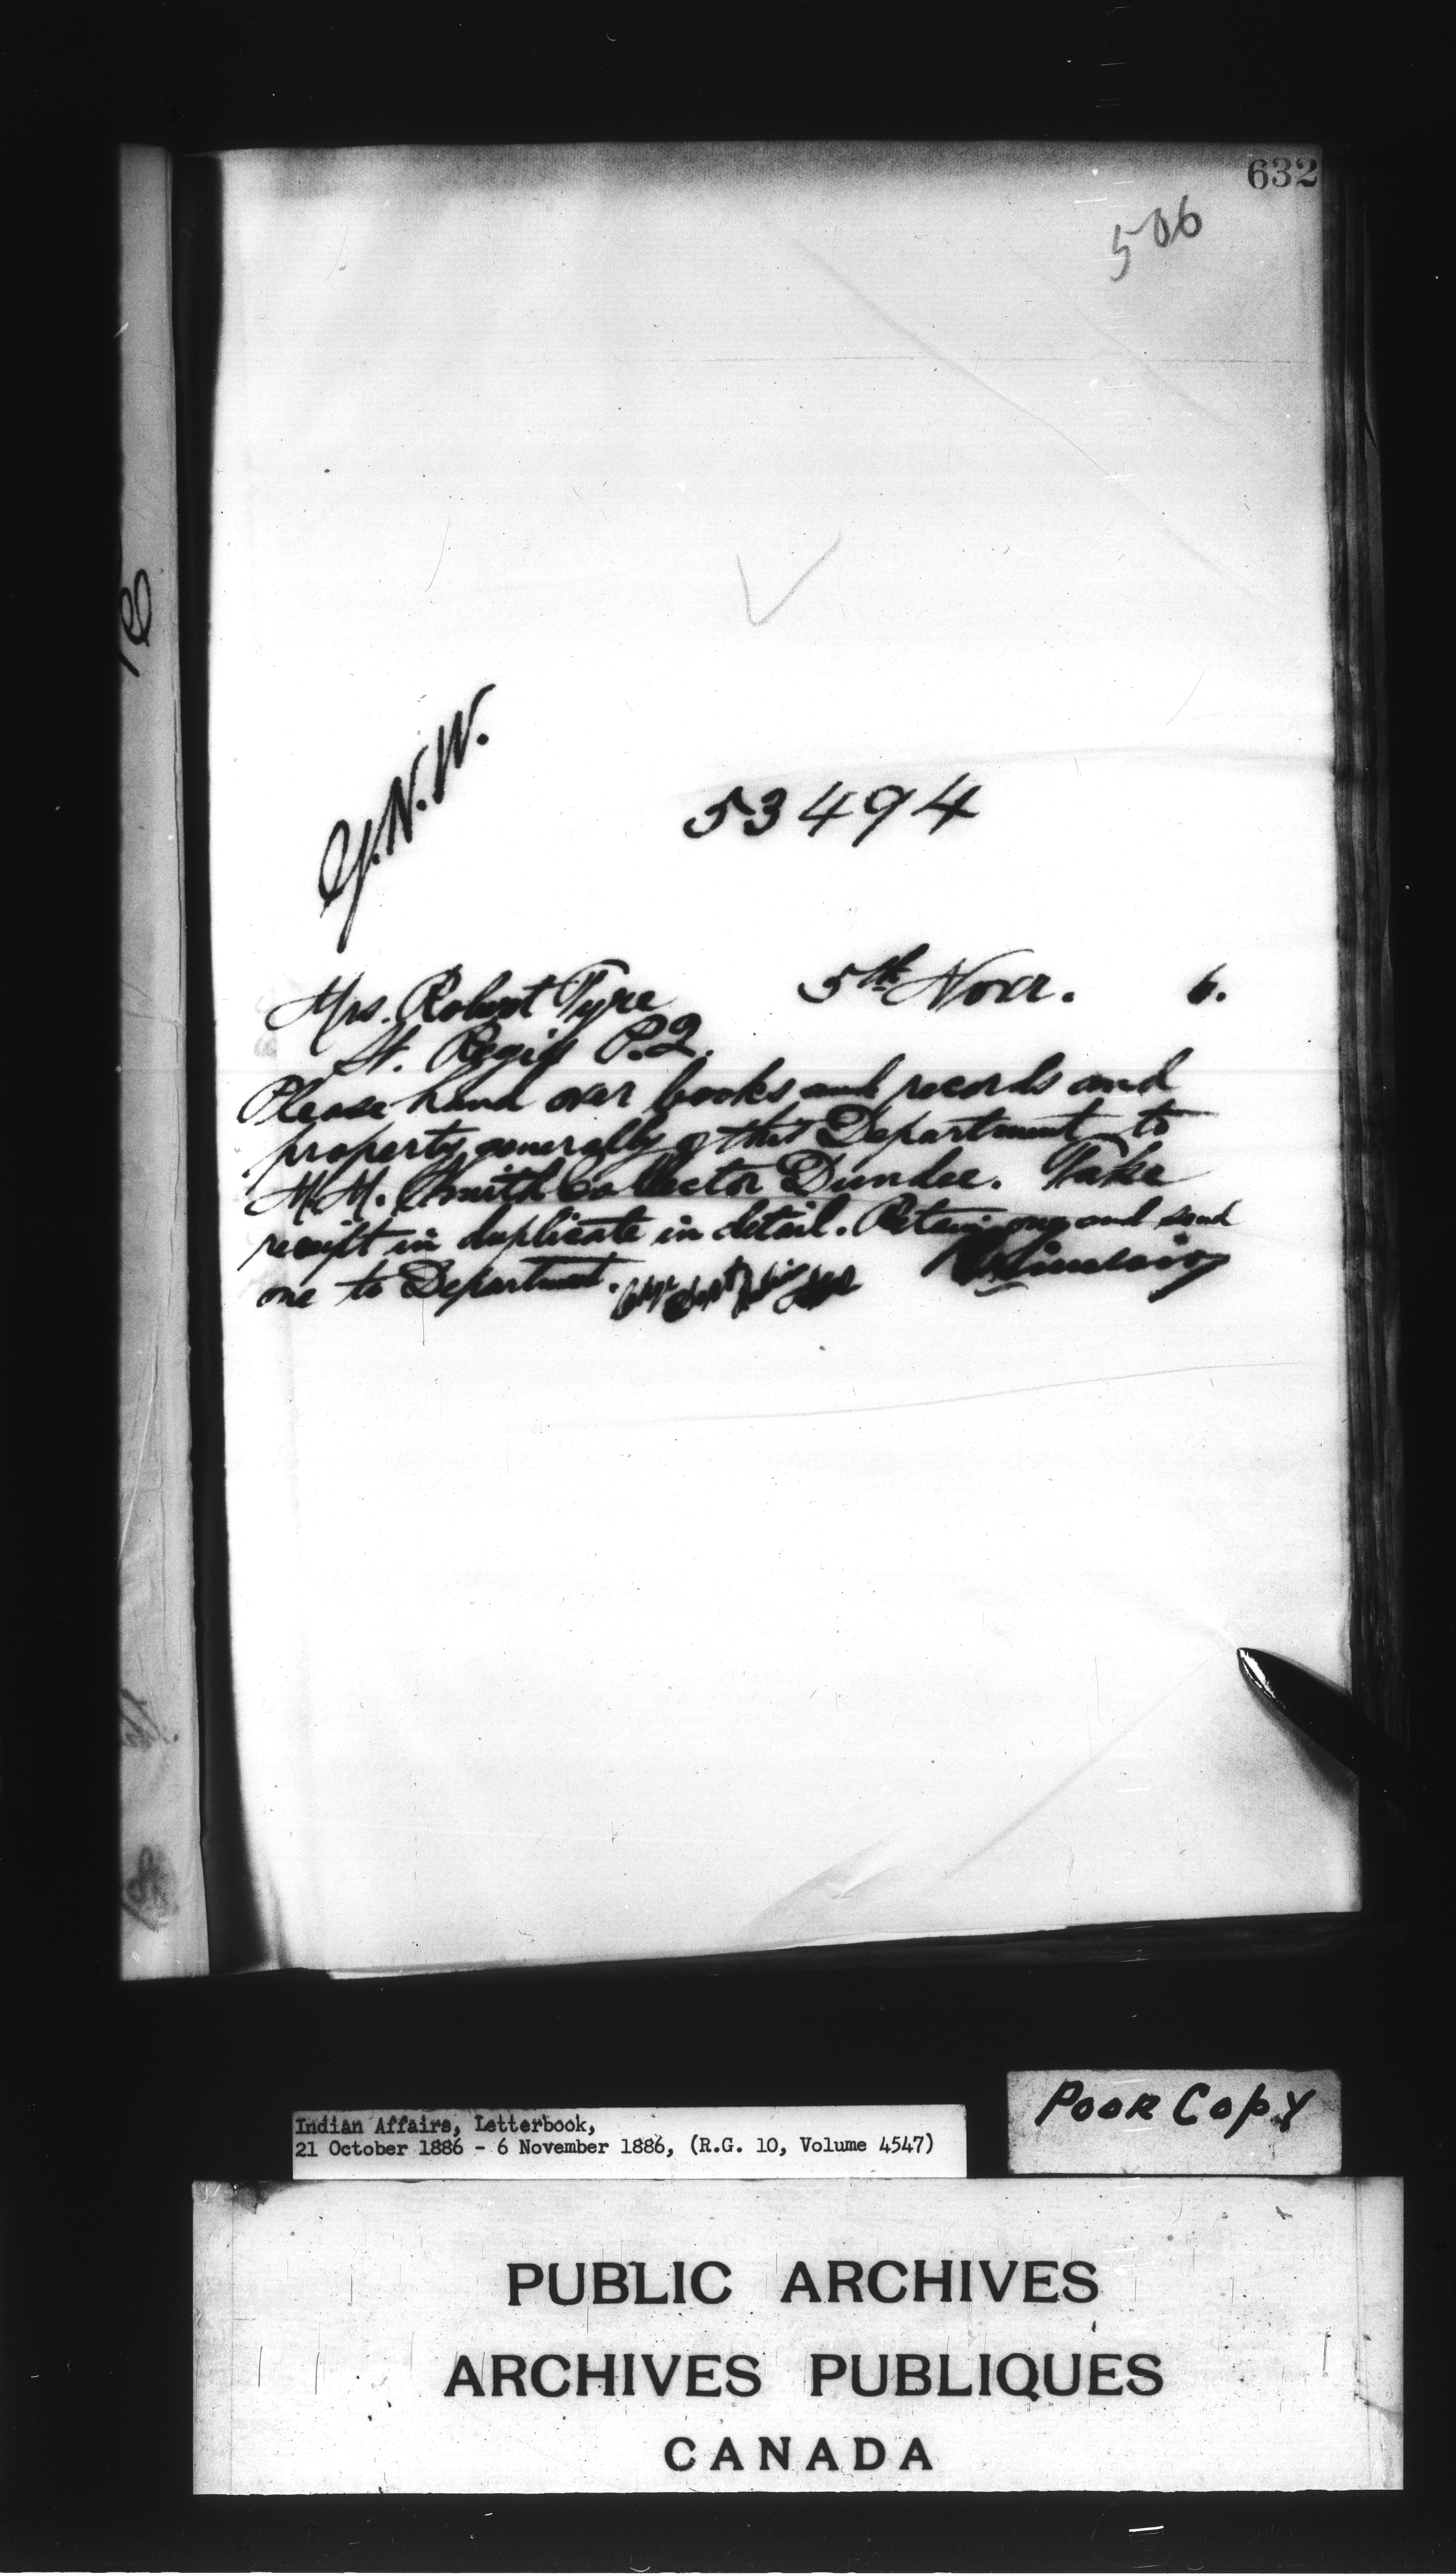 632
506
G.N.W.
53494
5th Novr. 6.
Mrs. Robert Tyre
St. Regis P.Q.
Please hand over books and records and
property generally of this Department to
M.M. Smith Collector Dundee. Take
receipt in duplicate in detail. Retain one and send
one to Department.
Indian Affairs, Letterbook,
21 October 1886 - 6 November 1886, (R.G. 10, Volume 4547)
POOR COPY
PUBLIC ARCHIVES
ARCHIVES PUBLIQUES
CANADA